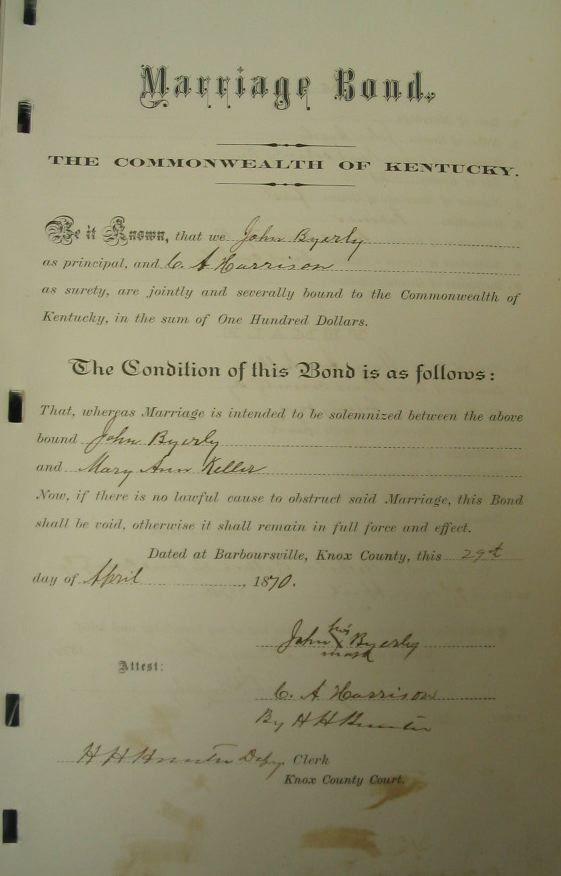 Marriage Bond.
THE COMMONWEALTH OF KENTUCKY.
Be it Known, that we John Byerly
as principal, and C. A Harrison
as surety, are jointly and severally bound to the Commonwealth of
Kentucky, in the sum of One Hundred Dollars.
The Condition of this Bond is as follows:
That, whereas Marriage is intended to be solemnized between the above
bound John Byerly
and Mary Ann Keller
Now, if there is no lawful cause to obstruct said Marriage, this Bond
shall be void, otherwise it shall remain in full force and effect.
Dated at Barboursville, Knox County, this 29th
day of April, 1870.
his
John X Byerly
mark
Attest:
C. A Harrison
By H H Hunter
H H Hunter Depy. Clerk
Knox County Court.